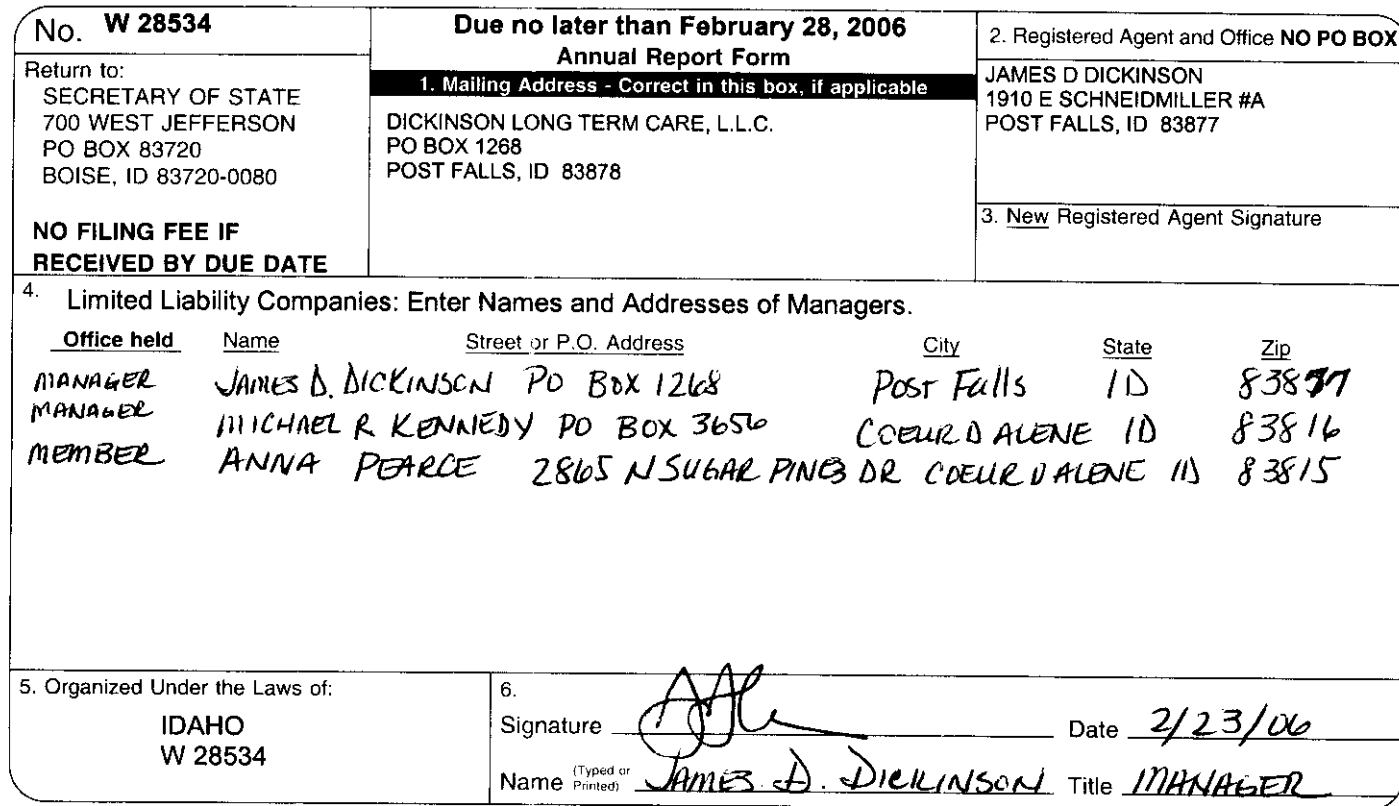 No. W 28534
Return to:
SECRETARY OF STATE
700 WEST JEFFERSON
PO BOX 83720
BOISE, ID 83720-0080
NO FILING FEE IF
RECEIVED BY DUE DATE
Due no later than February 28, 2006
Annual Report Form
1. Mailing Address - Correct in this box, if applicable
DICKINSON LONG TERM CARE, L.L.C.
PO BOX 1268
POST FALLS, ID 83878
2. Registered Agent and Office NO PO BOX
JAMES D DICKINSON
1910 E SCHNEIDMILLER #A
POST FALLS, ID 83877
3. New Registered Agent Signature
4. Limited Liability Companies: Enter Names and Addresses of Managers.
Office held Name Street or P.O. Address City State Zip
MANAGER JAMES D. DICKINSON PO BOX 1268 Post Falls ID 83877
MANAGER MICHAEL R KENNEDY PO BOX 3656 COEUR D ALENE ID 83816
MEMBER ANNA PEARCE 2865 N SUGAR PINES DR COEUR D ALENE ID 83815
5. Organized Under the Laws of:
IDAHO
W 28534
6.
Signature Date 2/23/06
Name (Typed or Printed) JAMES D. DICKINSON Title MANAGER